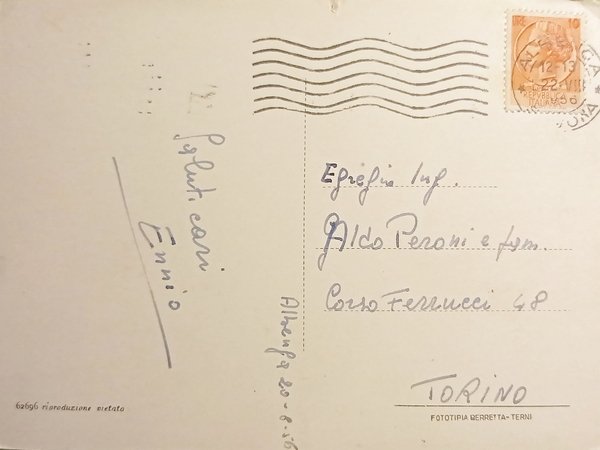 Saluti cari
Ennio
Albenga 20-8-56
ALBENGA
12-13
22 VIII
1956
L. 10
REPUBBLICA
ITALIANA
Egregio Ing.
Aldo Peroni e fam.
Corso Ferrucci 48
TORINO
62696 riproduzione vietata
FOTOTIPIA BERRETTA-TERNI